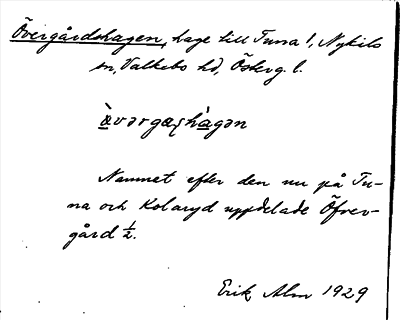 Övergårdshagen, hage till Tuna 1, Nykils
sn, Valkebo hd, Österg. l.
àvərgæʂhàgən
Namnet efter den nu på Tu-
na och Kolaryd uppdelade Öfver-
gård ½.
Erik Alm 1929